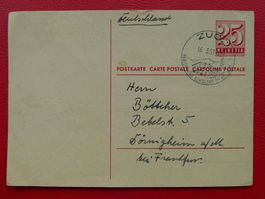 Deutschland
ZUG
25
HELVETIA
POSTKARTE CARTE POSTALE CARTOLINA POSTALE
Herrn
Böttcher
Bebelstr. 5
Dörnigheim a/M
bei Frankfurt